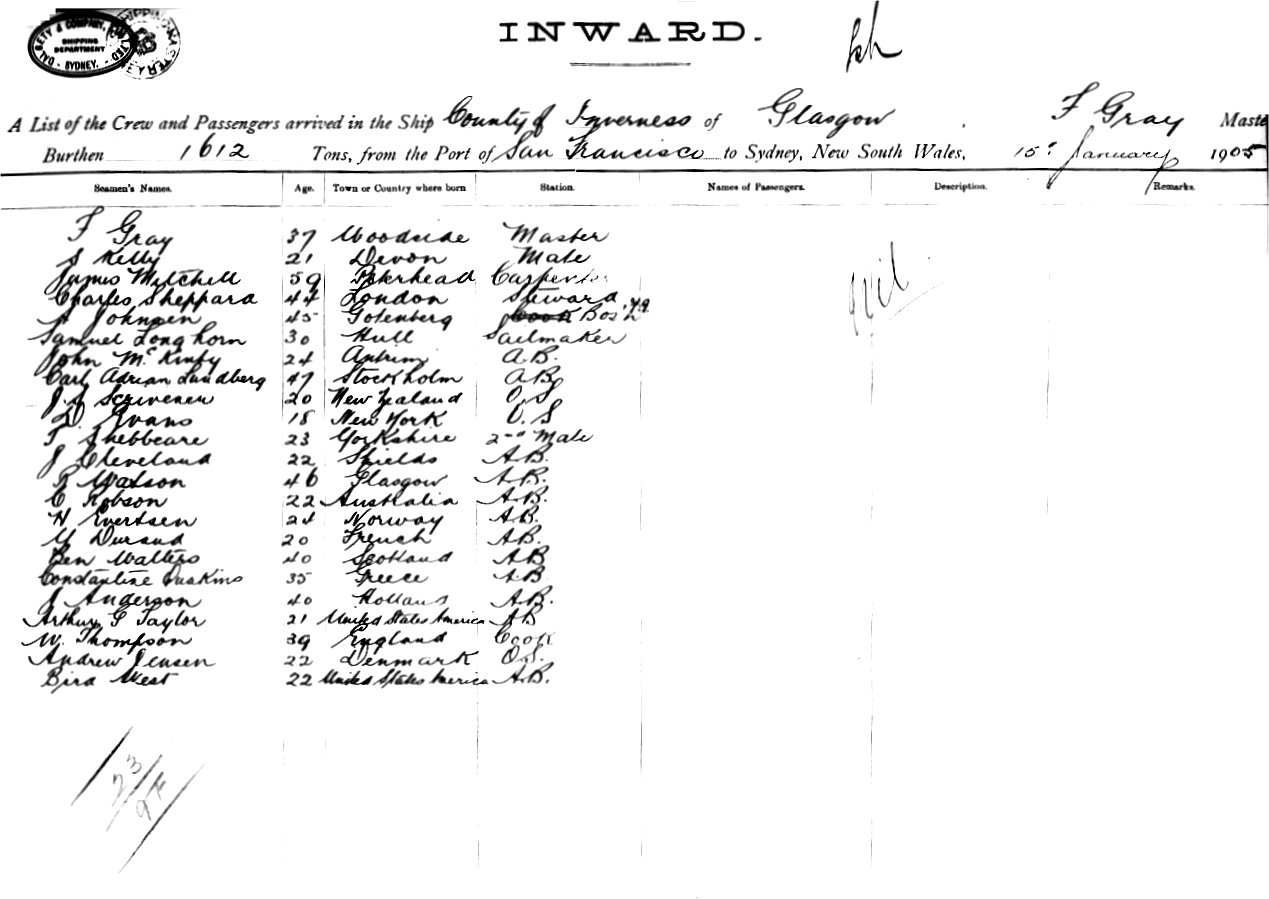 DALGETY & COMPANY, LIMITED
SHIPPING DEPARTMENT
SYDNEY.
INWARD.
A List of the Crew and Passengers arrived in the Ship County of Inverness of Glasgow. F Gray Maste
Burthen 1612 Tons, from the Port of San Francisco to Sydney, New South Wales, 15? January 1905
Seamen's Names. Age. Town or Country where born Station. Names of Passengers. Description. Remarks.
F Gray 37 Woodside Master
S Kelly 21 Devon Mate nil
James Mitchell 59 Peterhead Carpenter
Charles Sheppard 44 London Steward
A Johnsen 45 Gotenberg Cook Bos'n
Samuel Longhorn 30 Hull Sailmaker
John Mc Kinty 24 Antrim A.B.
Carl Adrian Lundberg 47 Stockholm A.B
J.A Scrivener 20 New Zealand O.S
D. Evans 18 New York O.S
T Shebbeare 23 Yorkshire 2nd Mate
J Cleveland 22 Shields A.B.
R Watson 46 Glasgow A.B.
C Robson 22 Australia A.B.
H Evertsen 24 Norway A.B.
Durand 20 French A.B.
Ben Walters 40 Scotland A.B
Constantine 35 Greece A.B
J Anderson 40 Holland A.B.
Arthur G Taylor 21 United States America AB
W. Thompson 39 England Cook
Andrew Jensen 22 Denmark O.S.
Bird West 22 United States America A.B.
23